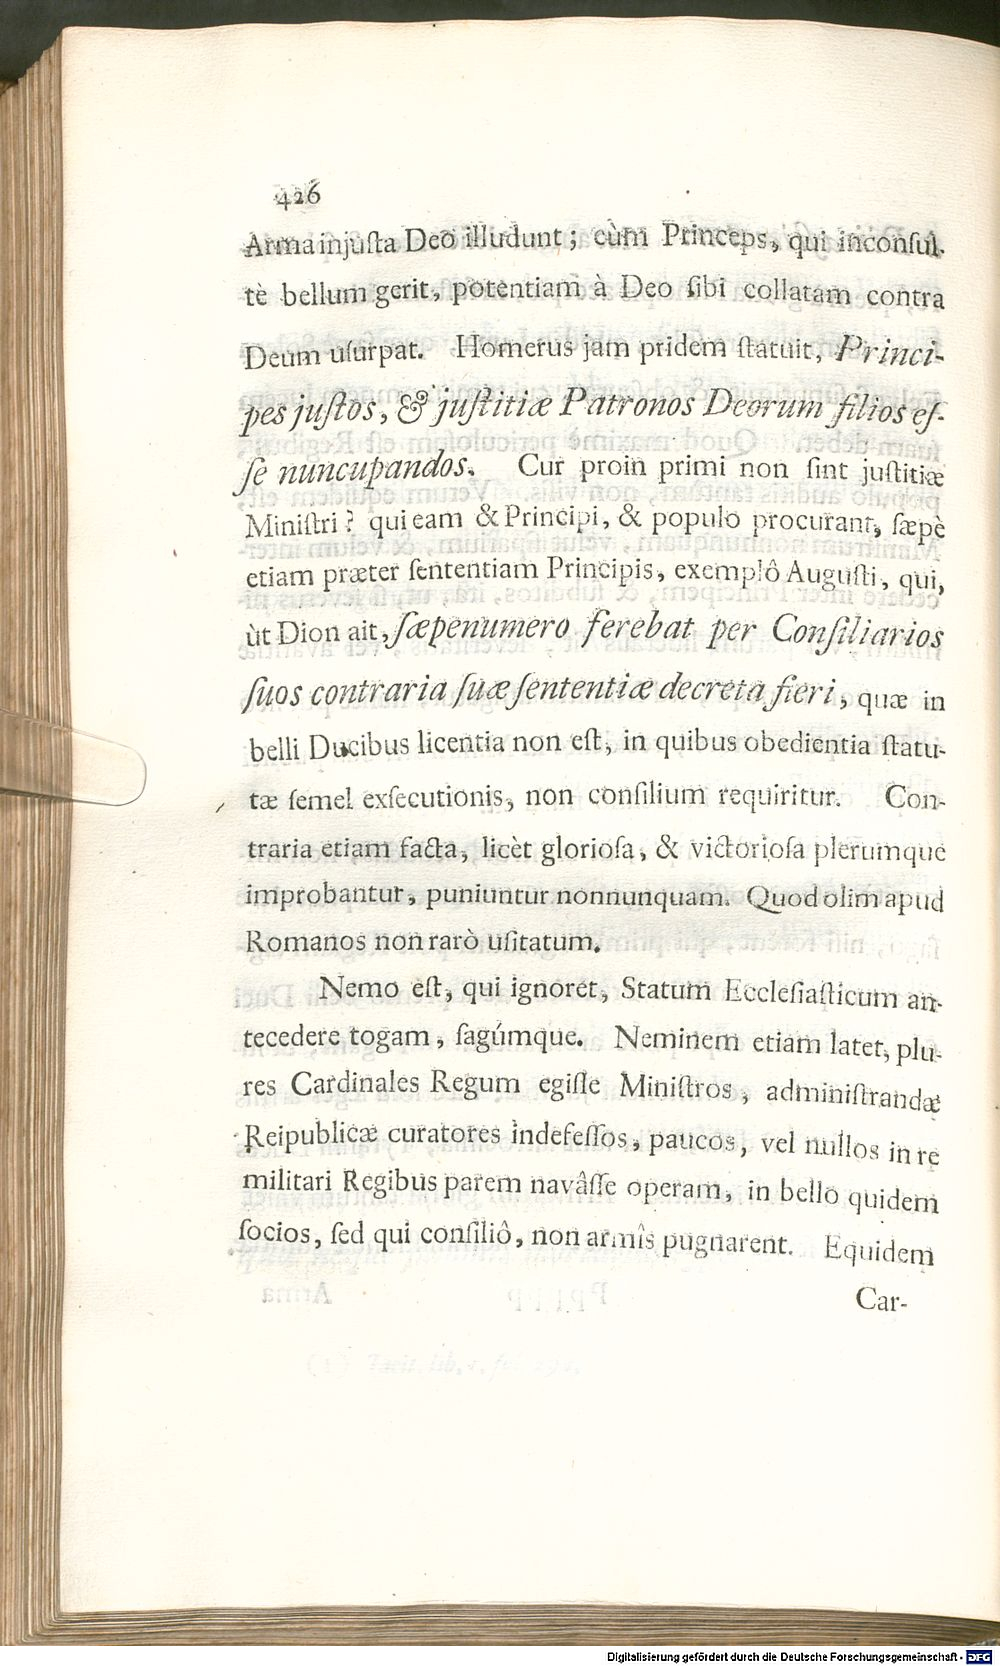 426
Arma injuſta Deo illudunt; cùm Princeps, qui inconſul-
tè bellum gerit, potentiam à Deo ſibi collatam contra
Deum uſurpat. Homerus jam pridem ſtatuit, Princi-
pes juſtos, & juſtitiæ Patronos Deorum filios eſ-
ſe nuncupandos. Cur proin primi non ſint juſtitiæ
Miniſtri? qui eam & Principi, & populo procurant, ſæpè
etiam præter ſententiam Principis, exemplô Auguſti, qui,
ùt Dion ait, ſæpenumero ferebat per Conſiliarios
ſuos contraria ſuæ ſententiæ decreta fieri, quæ in
belli Ducibus licentia non eſt, in quibus obedientia ſtatu-
tæ ſemel exſecutionis, non conſilium requiritur. Con-
traria etiam facta, licèt glorioſa, & victorioſa plerumque
improbantur, puniuntur nonnunquam. Quod olim apud
Romanos non rarò uſitatum.
Nemo eſt, qui ignoret, Statum Eccleſiaſticum an-
tecedere togam, ſagúmque. Neminem etiam latet, plu-
res Cardinales Regum egiſſe Miniſtros, adminiſtrandæ
Reipublicæ curatores indefeſſos, paucos, vel nullos in re
militari Regibus parem navâſſe operam, in bello quidem
ſocios, ſed qui conſiliô, non armîs pugnarent. Equidem
Car-
Digitalisierung gefördert durch die Deutsche Forschungsgemeinschaft - DFG